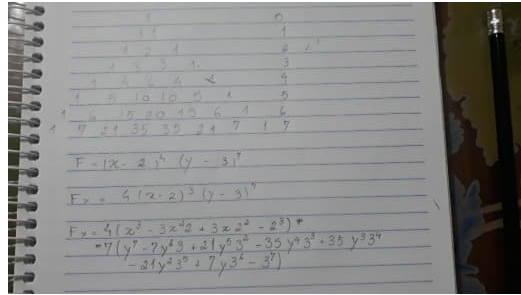 1 0
1 1 1
1 2 1 2
1 3 3 1 3
1 4 6 4 1 4
1 5 10 10 5 1 5
1 6 15 20 15 6 1 6
1 7 21 35 35 21 7 1 7
F = (x - 2)⁴ (y - 3)⁷
Fx = 4(x-2)³ (y-3)⁷
Fx = 4(x³ - 3x²2 + 3x2² - 2³)*
*7(y⁷ - 7y⁶3 + 21y⁵3² - 35y⁴3³ + 35y³3⁴
- 21y²3⁵ + 7y3⁶ - 3⁷)